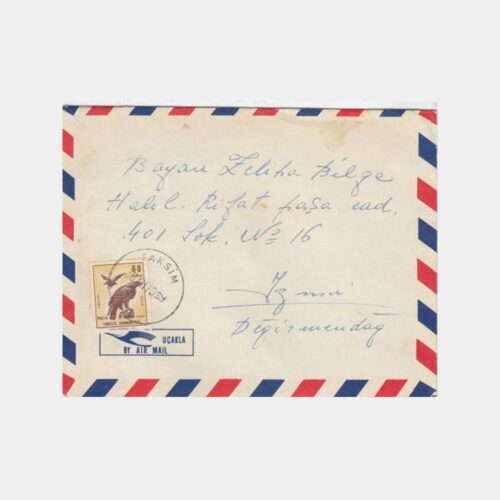 Bayan Zeliha Bilge
Halil Rifat paşa cad.
401 Sok. No 16
İzmir
Değirmendağ
TAKSİM
60
POSTA
TÜRKİYE CUMHURİYETİ
UÇAKLA
BY AIR MAIL